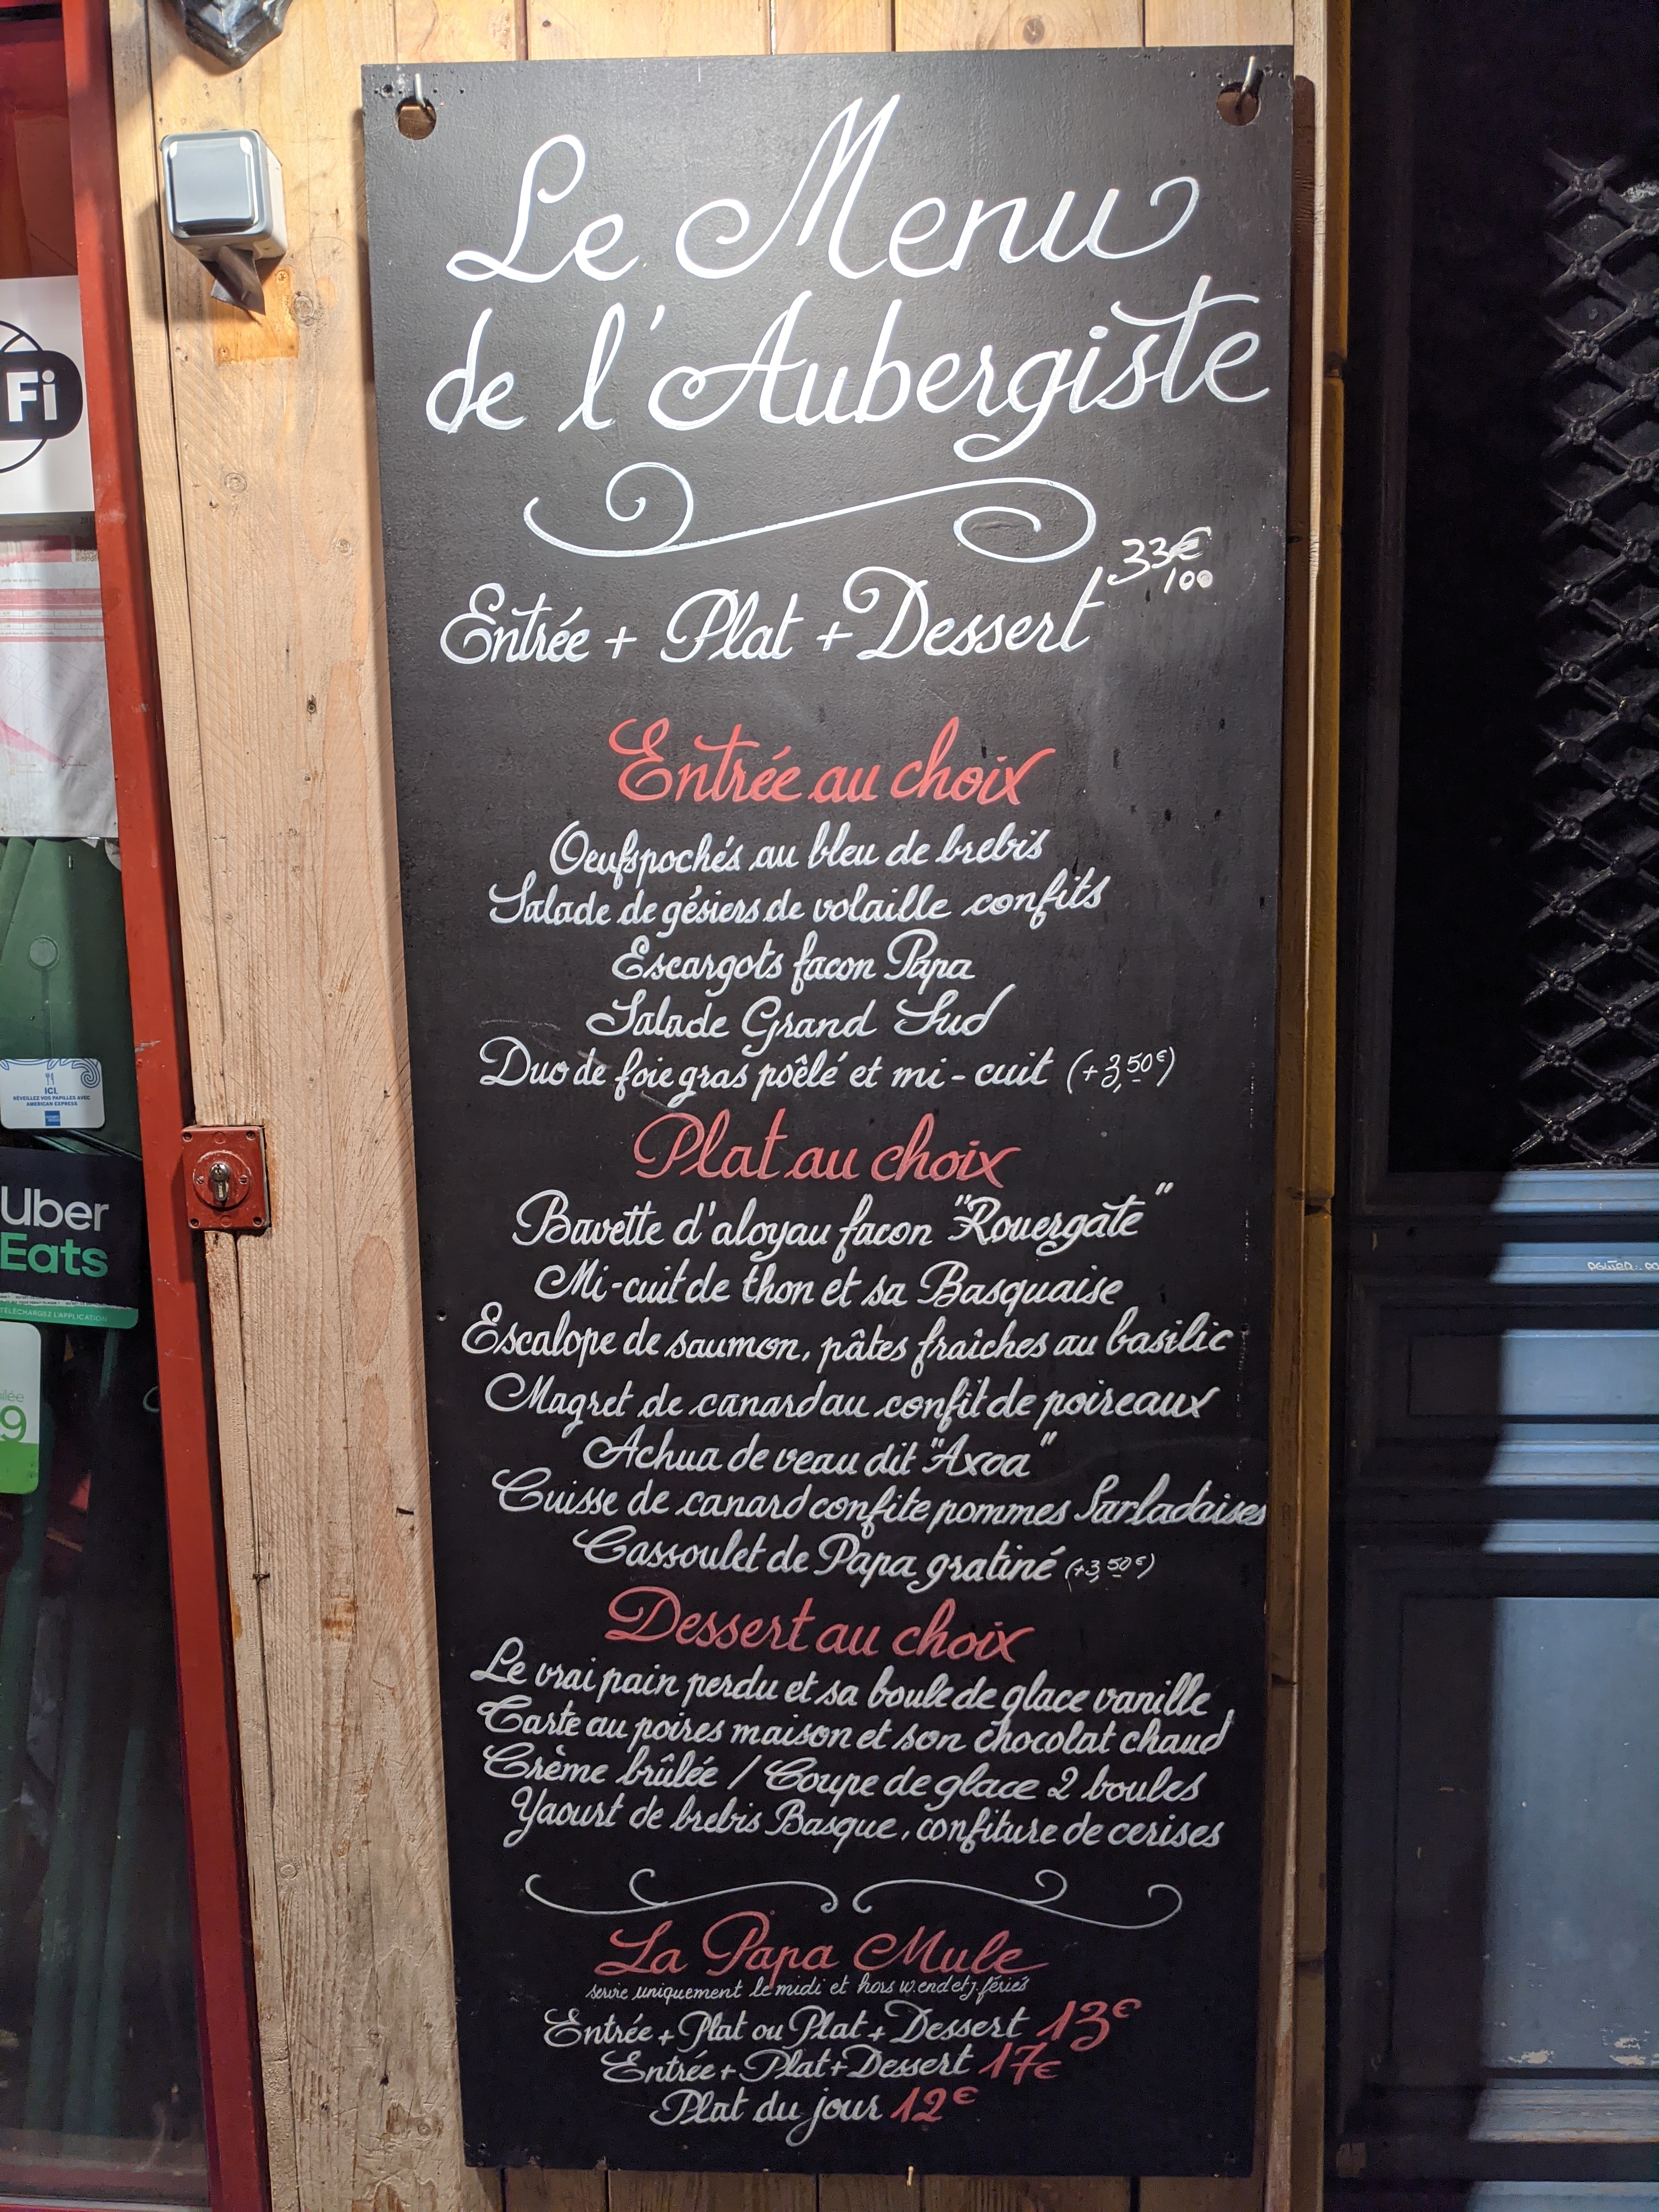 Le Menu
de l'Aubergiste
33€
100
Entrée + Plat + Dessert
Entrée au choix
Oeufs pochés au bleu de brebis
Salade de gésiers de volaille confits
Escargots facon Papa
Salade Grand Sud
Duo de foie gras poêlé et mi-cuit (+3,50€)
Plat au choix
Bavette d'aloyau facon "Rouergate"
Mi-cuit de thon et sa Basquaise
Escalope de saumon, pâtes fraîches au basilic
Magret de canard au confit de poireaux
Achua de veau dit "Axoa"
Cuisse de canard confite pommes Sarladaises
Cassoulet de Papa gratiné (+3,50€)
Dessert au choix
Le vrai pain perdu et sa boule de glace vanille
Tarte au poires maison et son chocolat chaud
Crème brûlée / Coupe de glace 2 boules
Yaourt de brebis Basque, confiture de cerises
La Papa Mule
servie uniquement le midi et hors w.end et j. fériés
Entrée + Plat ou Plat + Dessert 13€
Entrée + Plat + Dessert 17€
Plat du jour 12€
Fi
ICI,
RÉVEILLEZ VOS PAPILLES AVEC
AMERICAN EXPRESS
Uber
Eats
TÉLÉCHARGEZ L'APPLICATION
9